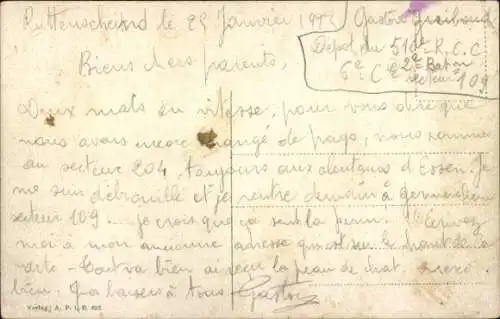 Ruttenscheind le 25 Janvier 1923
Gaston
Dépot du 510e R.C.C
6e Cie 2e Baton
secteur 109
Biens chers parents,
Deux mots en vitesse, pour vous dire que
nous avons encore changé de pays, nous sommes
au secteur 204, toujours aux alentours d'Essen. Je
me suis débrouillé et je rentre demain à
secteur 109... je crois que ça sent la Envoyez
moi à mon ancienne adresse qui est sur le haut de la
carte - Tout va bien ai reçu la peau de chat. merci
bien. baisers à tous Gaston
Verlag: A. P. i. E.